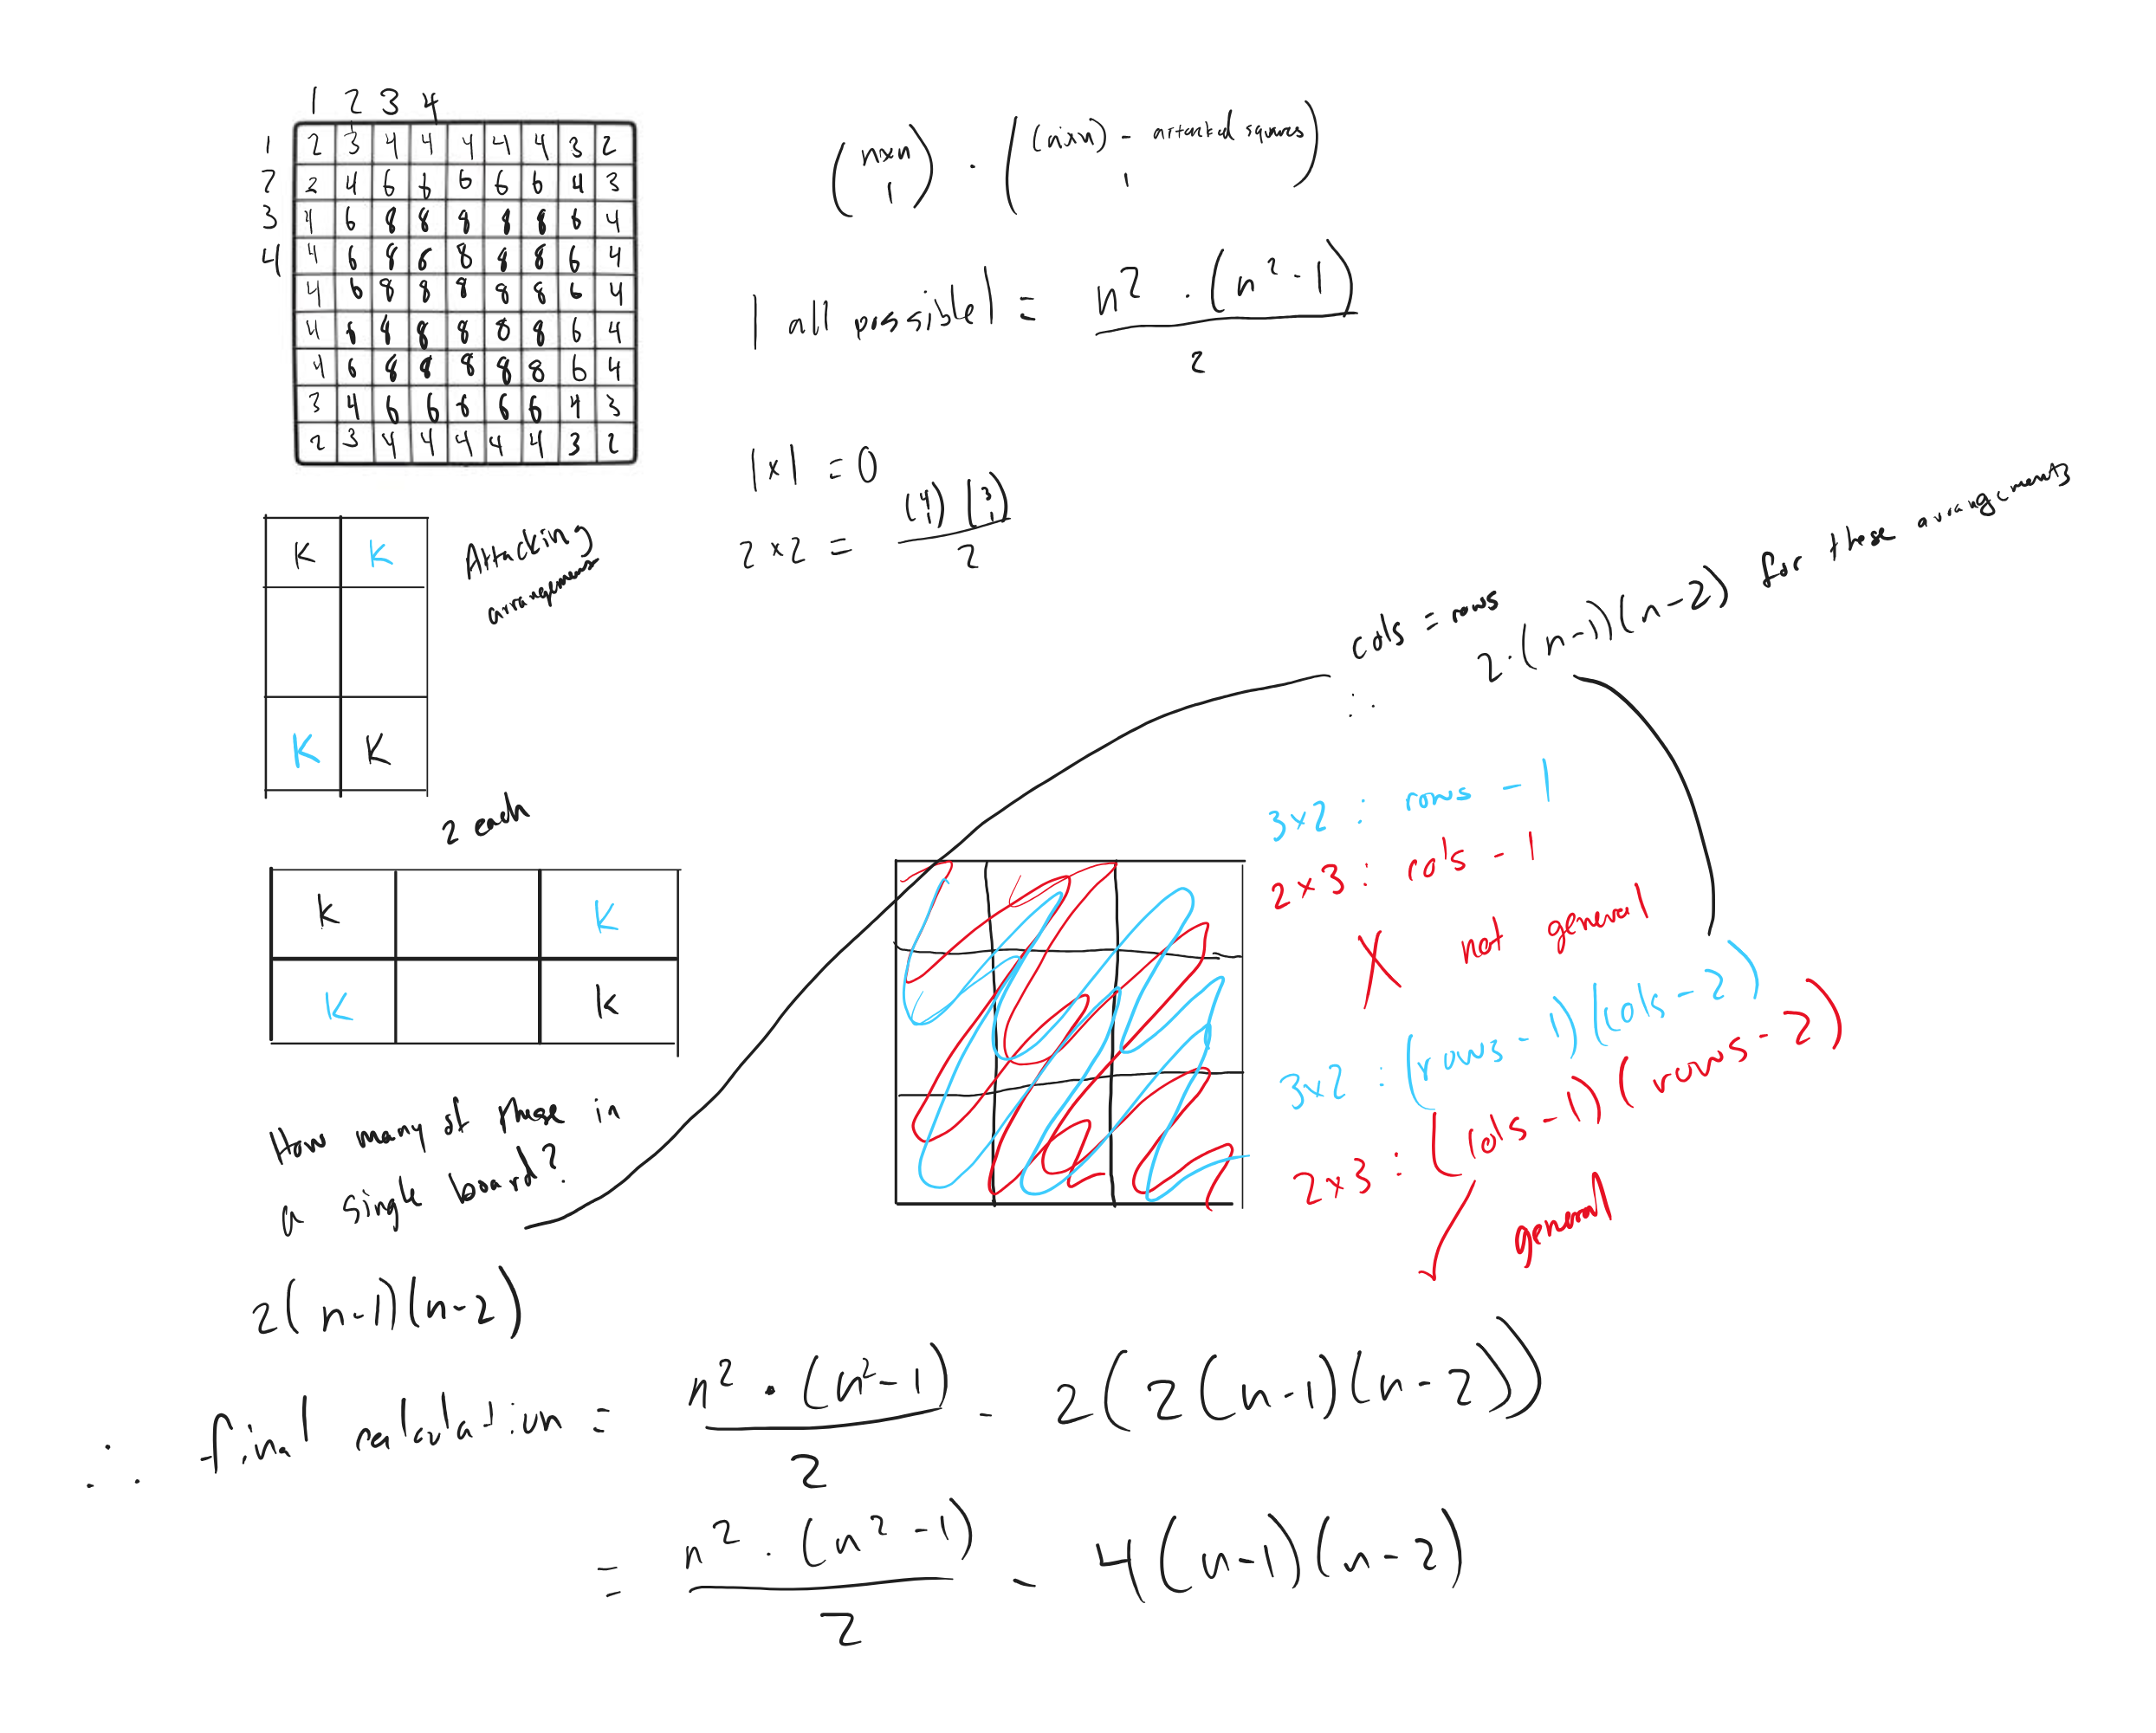 1 2 3 4
1 2 3 4 4 4 4 4 3 2
2 3 4 6 6 6 6 6 4 3
3 4 6 8 8 8 8 8 6 4
4 4 6 8 6 8 8 8 6 4
4 6 8 8 8 8 8 6 4
4 6 8 8 8 8 8 6 4
4 6 8 8 8 8 8 6 4
3 4 6 6 6 6 6 4 3
2 3 4 4 4 4 4 3 2
(n×n 1) · ((n×n) - attacked squares 1)
|all possible| = n² · (n² - 1) / 2
1×1 = 0
2×2 = (4 1)(3 1) / 2
K K
K K
Attacking
arrangements
2 each
K K
K K
How many of these in
a single board?
2(n-1)(n-2)
cols = rows
∴ 2·(n-1)(n-2) for these arrangements
3×2 : rows - 1
2×3 : cols - 1
X not general
3×2 : (rows - 1)(cols - 2)
2×3 : (cols - 1)(rows - 2)
✓ general
∴ final calculation = n² · (n² - 1) / 2 - 2(2(n-1)(n-2))
= n² · (n² - 1) / 2 - 4(n-1)(n-2)